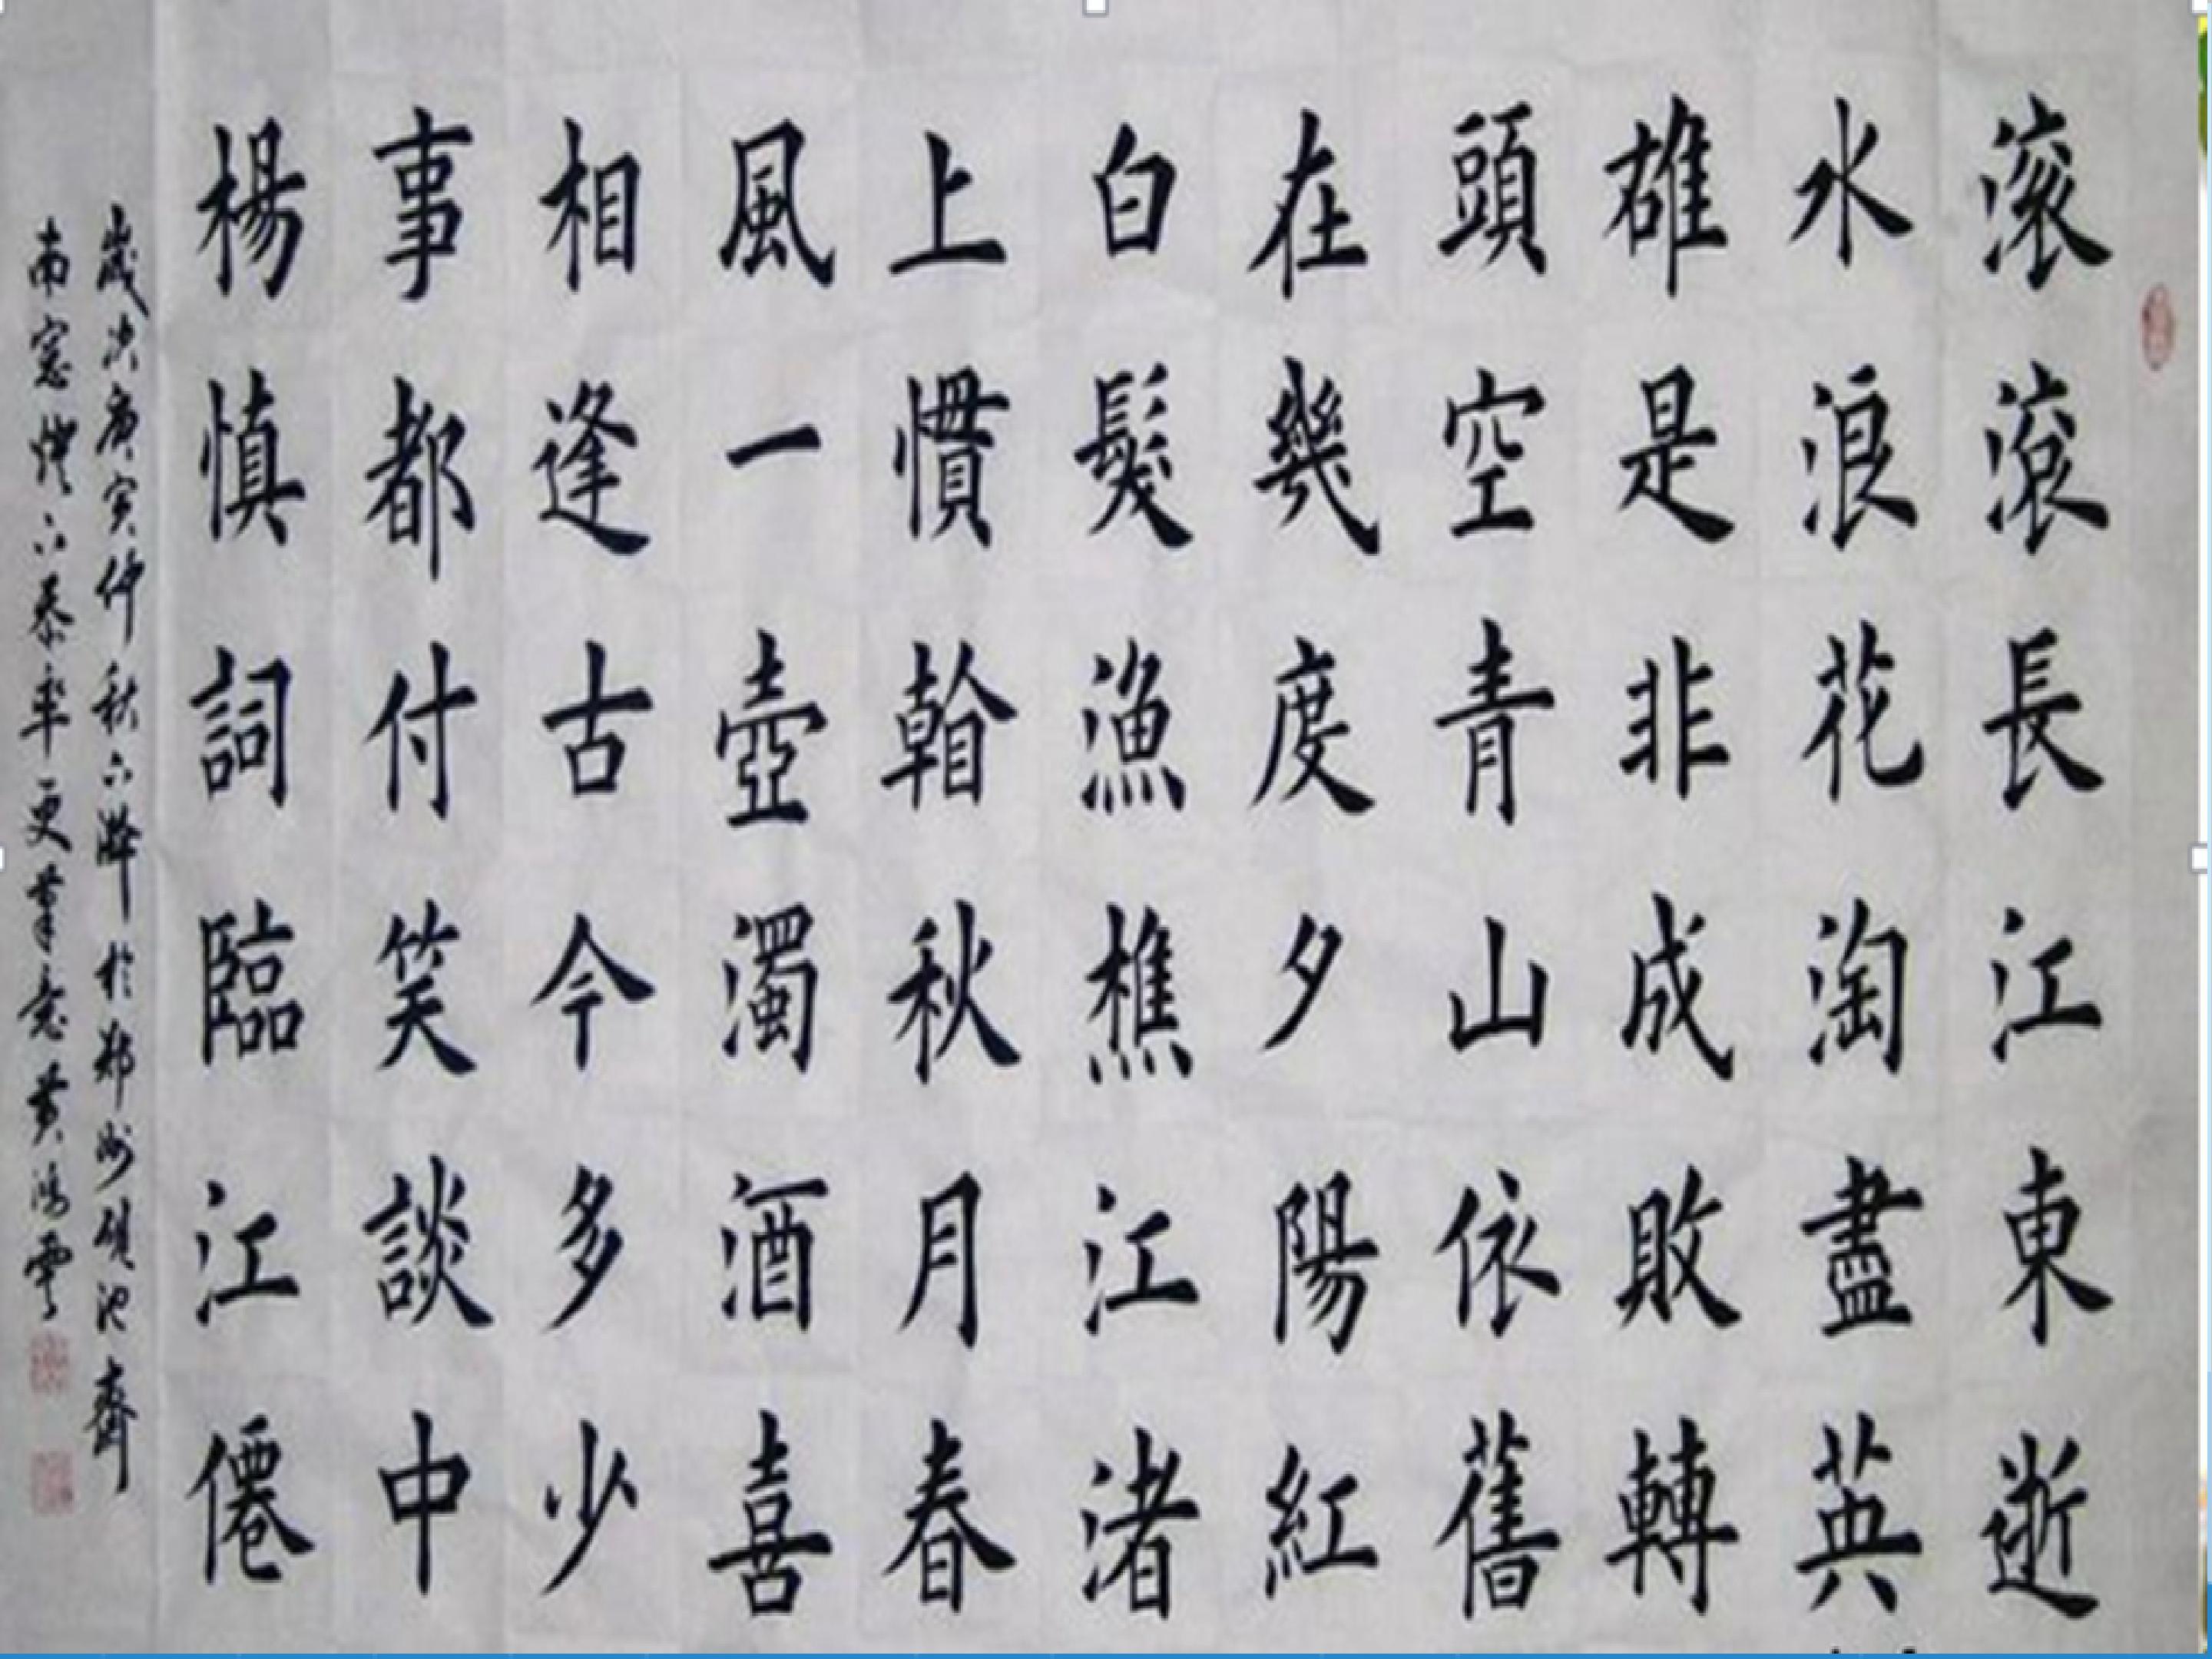 滚滚長江東逝
水浪花淘盡英
雄是非成敗轉
頭空青山依舊
在幾度夕陽紅
白髮漁樵江渚
上慣看秋月春
風一壺濁酒喜
相逢古今多少
事都付笑談中
楊慎詞臨江僊
歲次庚寅仲秋下澣於郑州硯池齋
南窓